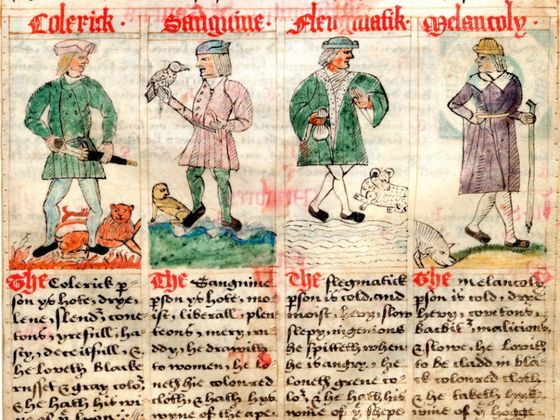 Colerick. Sanguine. Fleumatik. Melancoly.
The Colerick p
son ys hote, drye,
lene, slendr, coue
tous, yrefull, ha
sty, deceitfull, &
blacke
russet & gray color
& he hath his wi
The Sanguine
pson ys hote, mo
ist, liberall, plen
teous, mery, ru
ddy, he drawith
to women, he lo
ueth hie coloured
cloth & hath hys
wyne of the ape.
The flegmatick
pson is cold, and
moist, hevy, slow
slepy, ingenious
he spitteth when
he is angry, he
loueth grene co
lor, & he hath his
wine of ye shepe
The melancoly
pson is cold, drye
hevy, covetous,
malicious,
& slowe, he lovith
to be cladd in bla
ck coloured cloth,
he taketh hys
wine of ye hogge